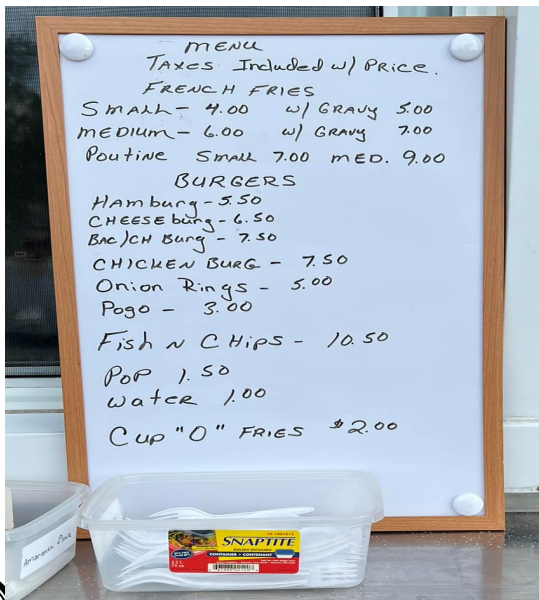 MENU
TAXES Included w/ PRICE.
FRENCH FRIES
SMALL - 4.00 w/ GRAVY 5.00
MEDIUM - 6.00 w/ GRAVY 7.00
Poutine SMALL 7.00 MED. 9.00
BURGERS
HAmburg - 5.50
CHEESE burg - 6.50
BAC/CH Burg - 7.50
CHICKEN BURG - 7.50
Onion Rings - 5.00
Pogo - 3.00
Fish N CHips - 10.50
POP 1.50
Water 1.00
Cup "O" FRIES $2.00
SNAPTITE
CONTAINER • CONTENANT
Amaranth